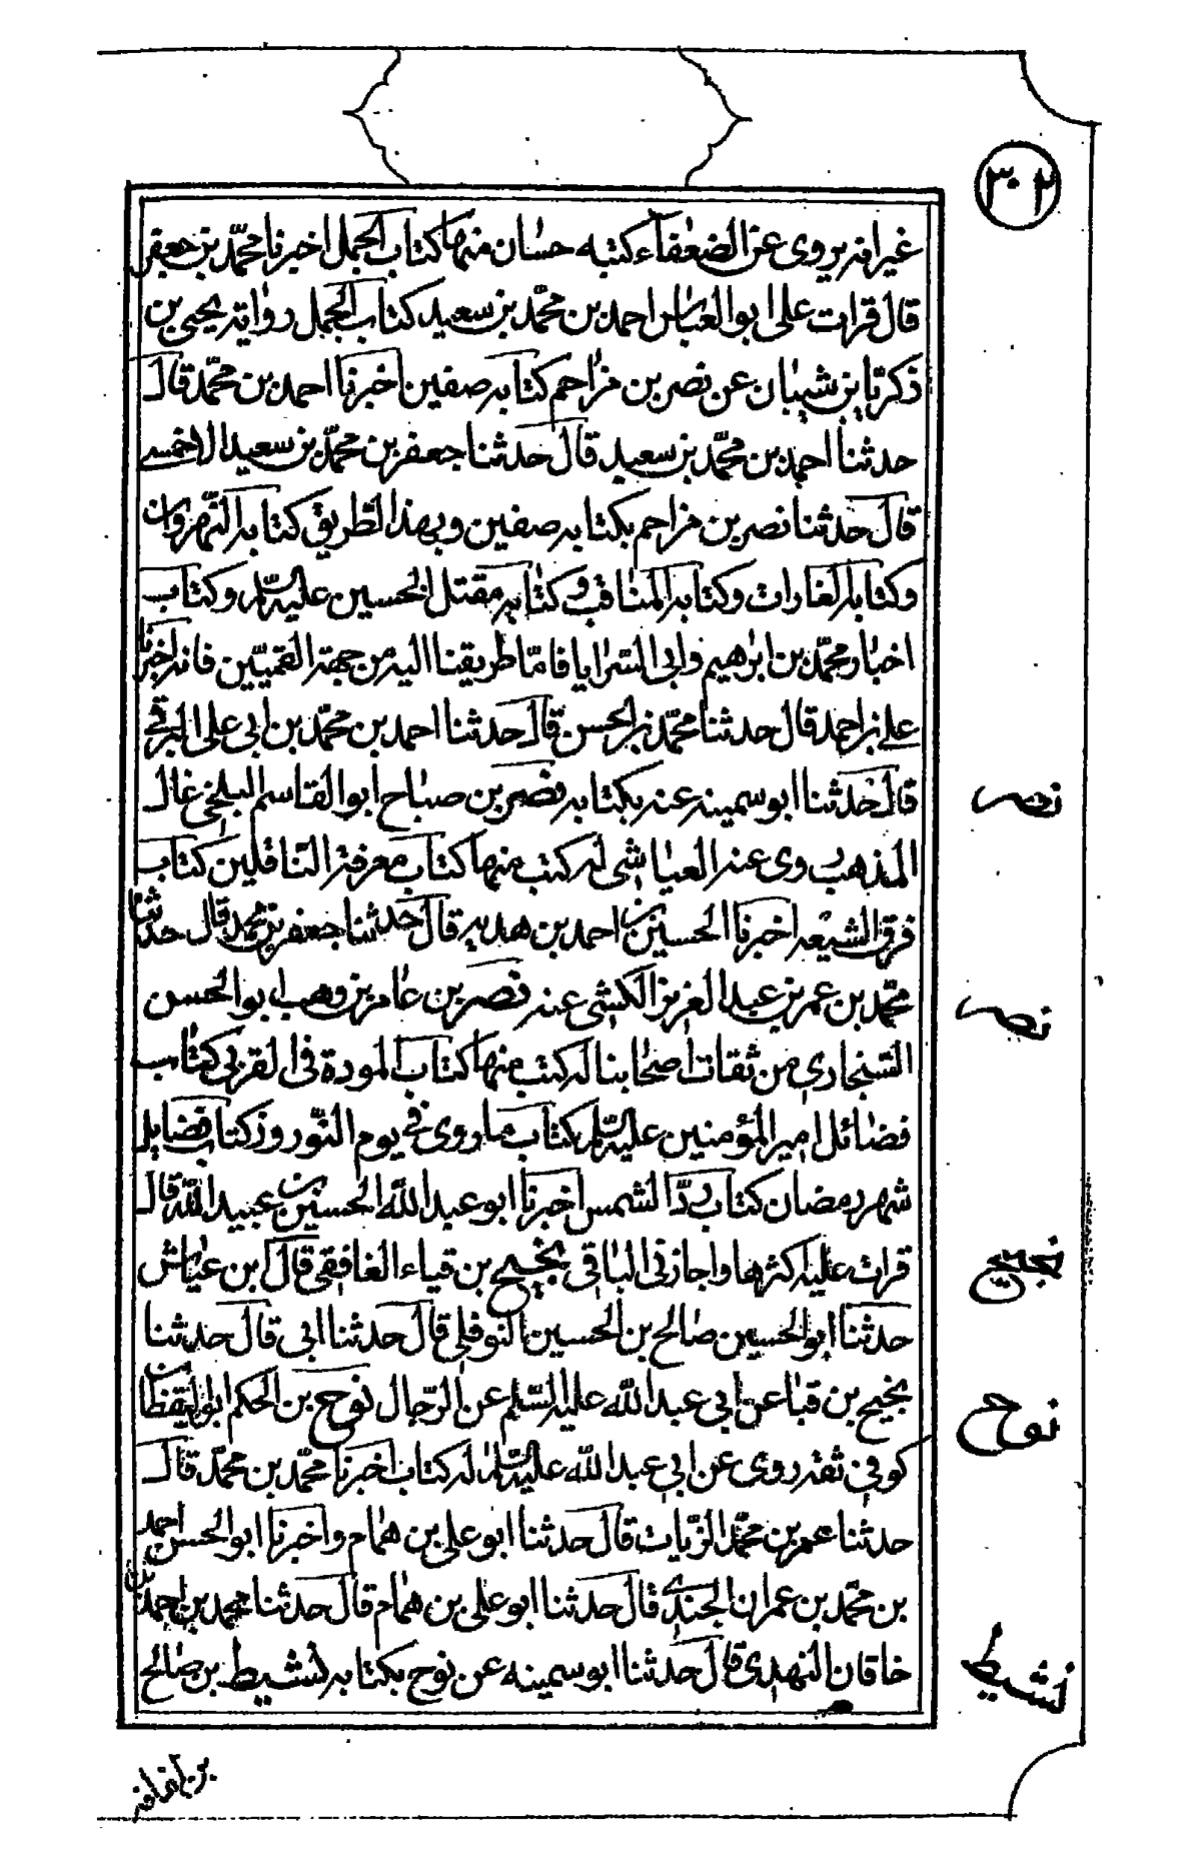 ٣٠٢
غير انه يروى عن الضعفاء كتبه حسان منها كتاب الجمل اخبرنا محمّد بن جعفر
قال قرات على ابو العباس احمد بن محمّد بن سعيد كتاب الجمل رواية يحيى بن
ذكريّا بن شيبان عن نصر بن مزاحم كتابه صفين اخبرنا احمد بن محمّد قال
حدثنا احمد بن محمّد بن سعيد قال حدثنا جعفر بن محمّد بن سعيد الاحمسى
قال حدثنا نصر بن مزاحم بكتابه صفين وبهذا الطريق كتابه النّهروان
وكتابه الغارات وكتابه المناقب وكتابه مقتل الحسين عليه السّلم وكتاب
اخبار محمّد بن ابرهيم وابى السّرايا فامّا طريقنا اليه من جهة القميّين فانه اخبرنا
على بن احمد قال حدثنا محمّد بن الحسن قال حدثنا احمد بن محمّد بن ابى على البرقى
قال حدثنا ابو سمينه عنه بكتابه نصر بن صباح ابو القاسم البلخى غال
نصر
المذهب روى عنه العياشى له كتب منها كتاب معرفة النّاقلين كتاب
فرق الشيعه اخبرنا الحسين بن احمد بن هديه قال حدثنا جعفر بن محمد قال حدثنا
محمّد بن عمر بن عبد العزيز الكشى عنه نصر بن عامر بن وهب ابو الحسن
نصر
السّنجارى من ثقات اصحابنا له كتب منها كتاب المودة فى القربى كتاب
فضائل امير المؤمنين عليه السّلم كتاب ما روى فى يوم النّوروز كتاب فضايل
شهر رمضان كتاب ردّ الشمس اخبرنا ابو عبد اللّه الحسين بن عبيد اللّه قال
قرات عليه اكثرها واجازنى الباقى نجيح بن قباء الغافقى قال ابن عياش
نجيح
حدثنا ابو الحسين صالح بن الحسين النوفلى قال حدثنا ابى قال حدثنا
نجيح بن قبا عن ابى عبد اللّه عليه السّلم عن الرّجال نوح بن الحكم ابو اليقظان
نوح
كوفى ثقة روى عن ابى عبد اللّه عليه السّلم له كتاب اخبرنا محمّد بن محمّد قال
حدثنا عمر بن محمّد الزّيات قال حدثنا ابو على بن همام واخبرنا ابو الحسن احمد
بن محمّد بن عمران الجندى قال حدثنا ابو على بن همام قال حدثنا محمد بن احمد بن
خاقان النهدى قال حدثنا ابو سمينه عن نوح بكتابه نشيط بن صالح
نشيط